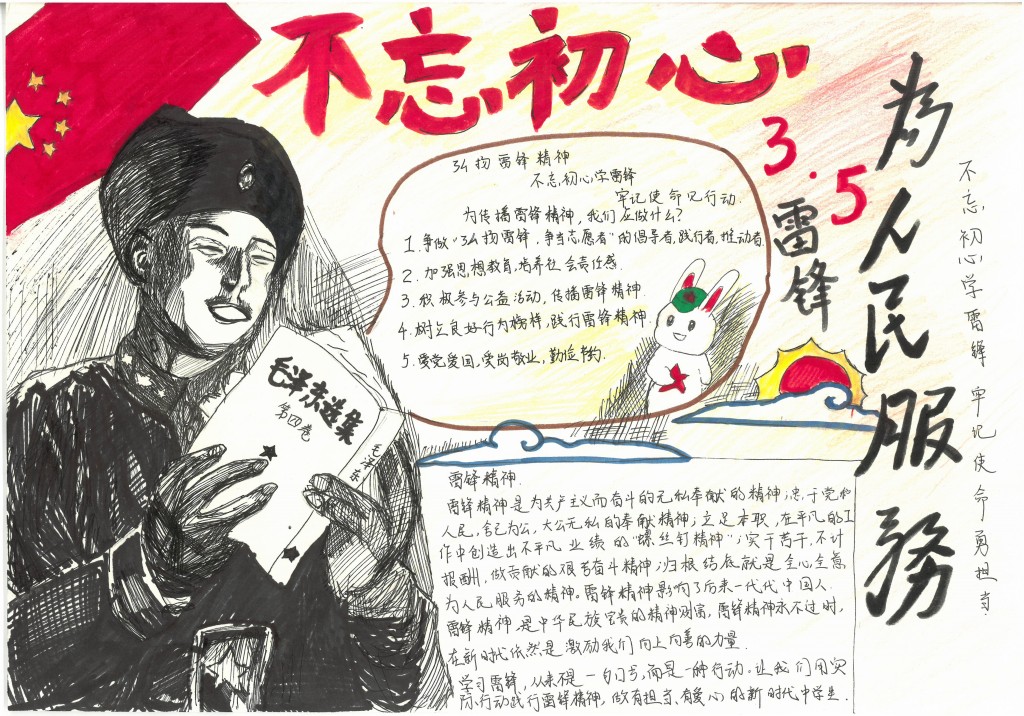 不忘初心
3.5
雷锋
为人民服務
不忘初心学雷锋 牢记使命勇担当
34扬雷锋精神
不忘初心学雷锋
牢记使命见行动
为传播雷锋精神，我们应做什么？
1.争做“34扬雷锋，争当志愿者”的倡导者，践行者，推动者.
2.加强思想教育，培养社会责任感.
3.积极参与公益活动，传播雷锋精神.
4.树立良好行为榜样，践行雷锋精神.
5.爱党爱国，爱岗敬业，勤俭节约.
毛泽东选集
第四卷
毛泽东
雷锋精神.
雷锋精神是为共产主义而奋斗的无私奉献的精神；忠于党和
人民，舍己为公，大公无私的奉献精神；立足本职，在平凡的工
作中创造出不平凡业绩的“螺丝钉精神”；实干苦干，不计
报酬，做贡献的艰苦奋斗精神；归根结底就是全心全意
为人民服务的精神。雷锋精神影响了后来一代代中国人.
雷锋精神，是中华民族宝贵的精神财富，雷锋精神永不过时，
在新时代依然是激励我们向上向善的力量.
学习雷锋，从来不是一句口号，而是一种行动.让我们用实
际行动践行雷锋精神，做有担当、有爱心的新时代中学生.